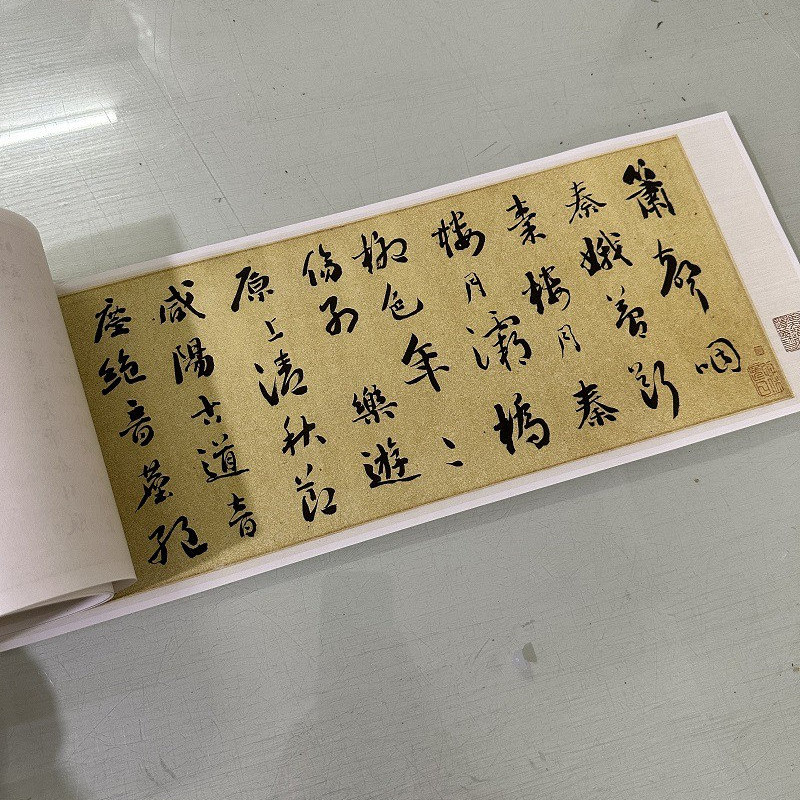 簫聲咽
秦娥夢斷
秦樓月秦
樓月灞橋
柳色年〻
傷別樂遊
原上清秋節
咸陽古道音
塵絕音塵絕